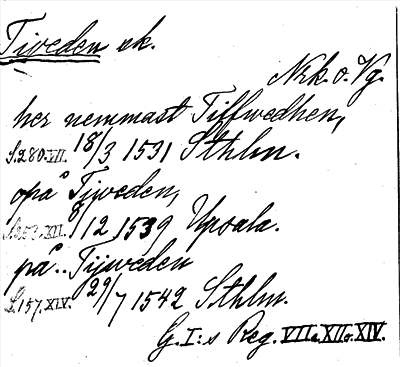 Tiveden sk.
Nrk. o. Vg.
her nemmast Tiffwedhen,
S. 280. VII. 18/3 1531 Sthlm.
opå Tijweden,
S. 253. XII. 8/12 1539 Upsala.
på.. Tijweden
S. 157. XIV. 29/7 1542 Sthlm.
G. I:s Reg. VII. XII o. XIV.